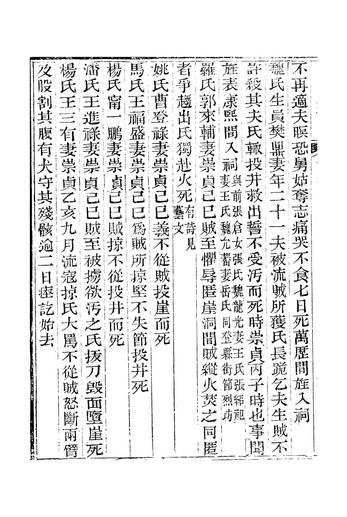 不再適夫瞑恐舅姑奪志痛哭不食七日死萬厯間旌入祠
魏氏生員樊鼎妻年二十一夫被流賊所獲氏長跪乞夫生賊不
許殺其夫氏輒投井救出誓不受汚而死時崇貞丙子時也事聞
旌表康熙間入祠
羅氏郭來輔妻崇貞己巳賊至懼辱匿崖洞間賊縱火焚之同匿
者爭趨出氏獨赴火死有詩見藝文
姚氏曹登祿妻崇貞己巳義不從賊投崖而死
馬氏王福盛妻崇貞己巳爲賊所掠堅不失節投井死
楊氏甯一鵬妻崇貞己巳賊掠不從投井而死
潘氏王進祿妻崇貞己巳賊至被擄欲汚之氏拔刀毀面墮崖死
楊氏王三有妻崇貞乙亥九月流寇掠氏大罵不從賊怒斷兩臂
及股割其腹有犬守其殘骸逾二日瘞訖始去